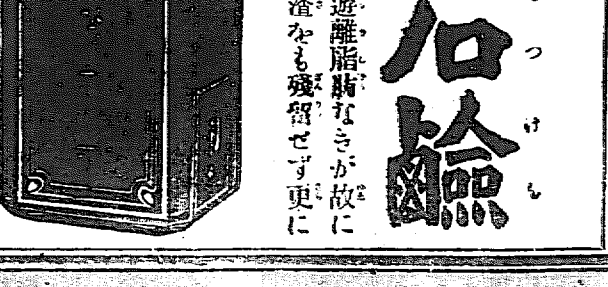 石鹼
遊離脂肪なきが故に
渣をも殘留せず更に